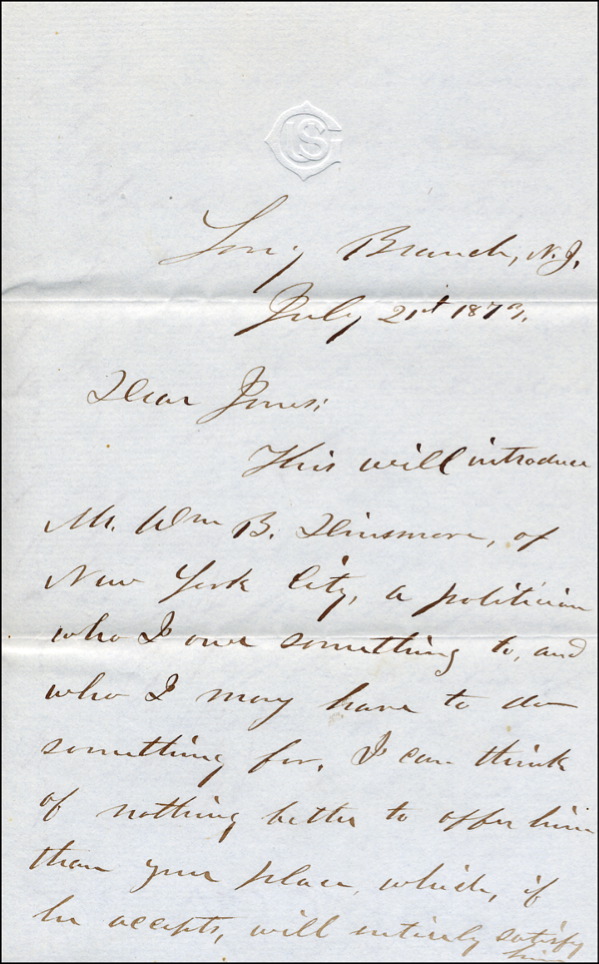 USG
Long Branch, N.J.
July 21st 1879.
Dear Jones:
This will introduce
Mr. Wm B. Dinsmore, of
New York City, a politician
who I owe something to, and
who I may have to do
something for. I can think
of nothing better to offer him
than your place, which, if
he accepts, will entirely satisfy
him